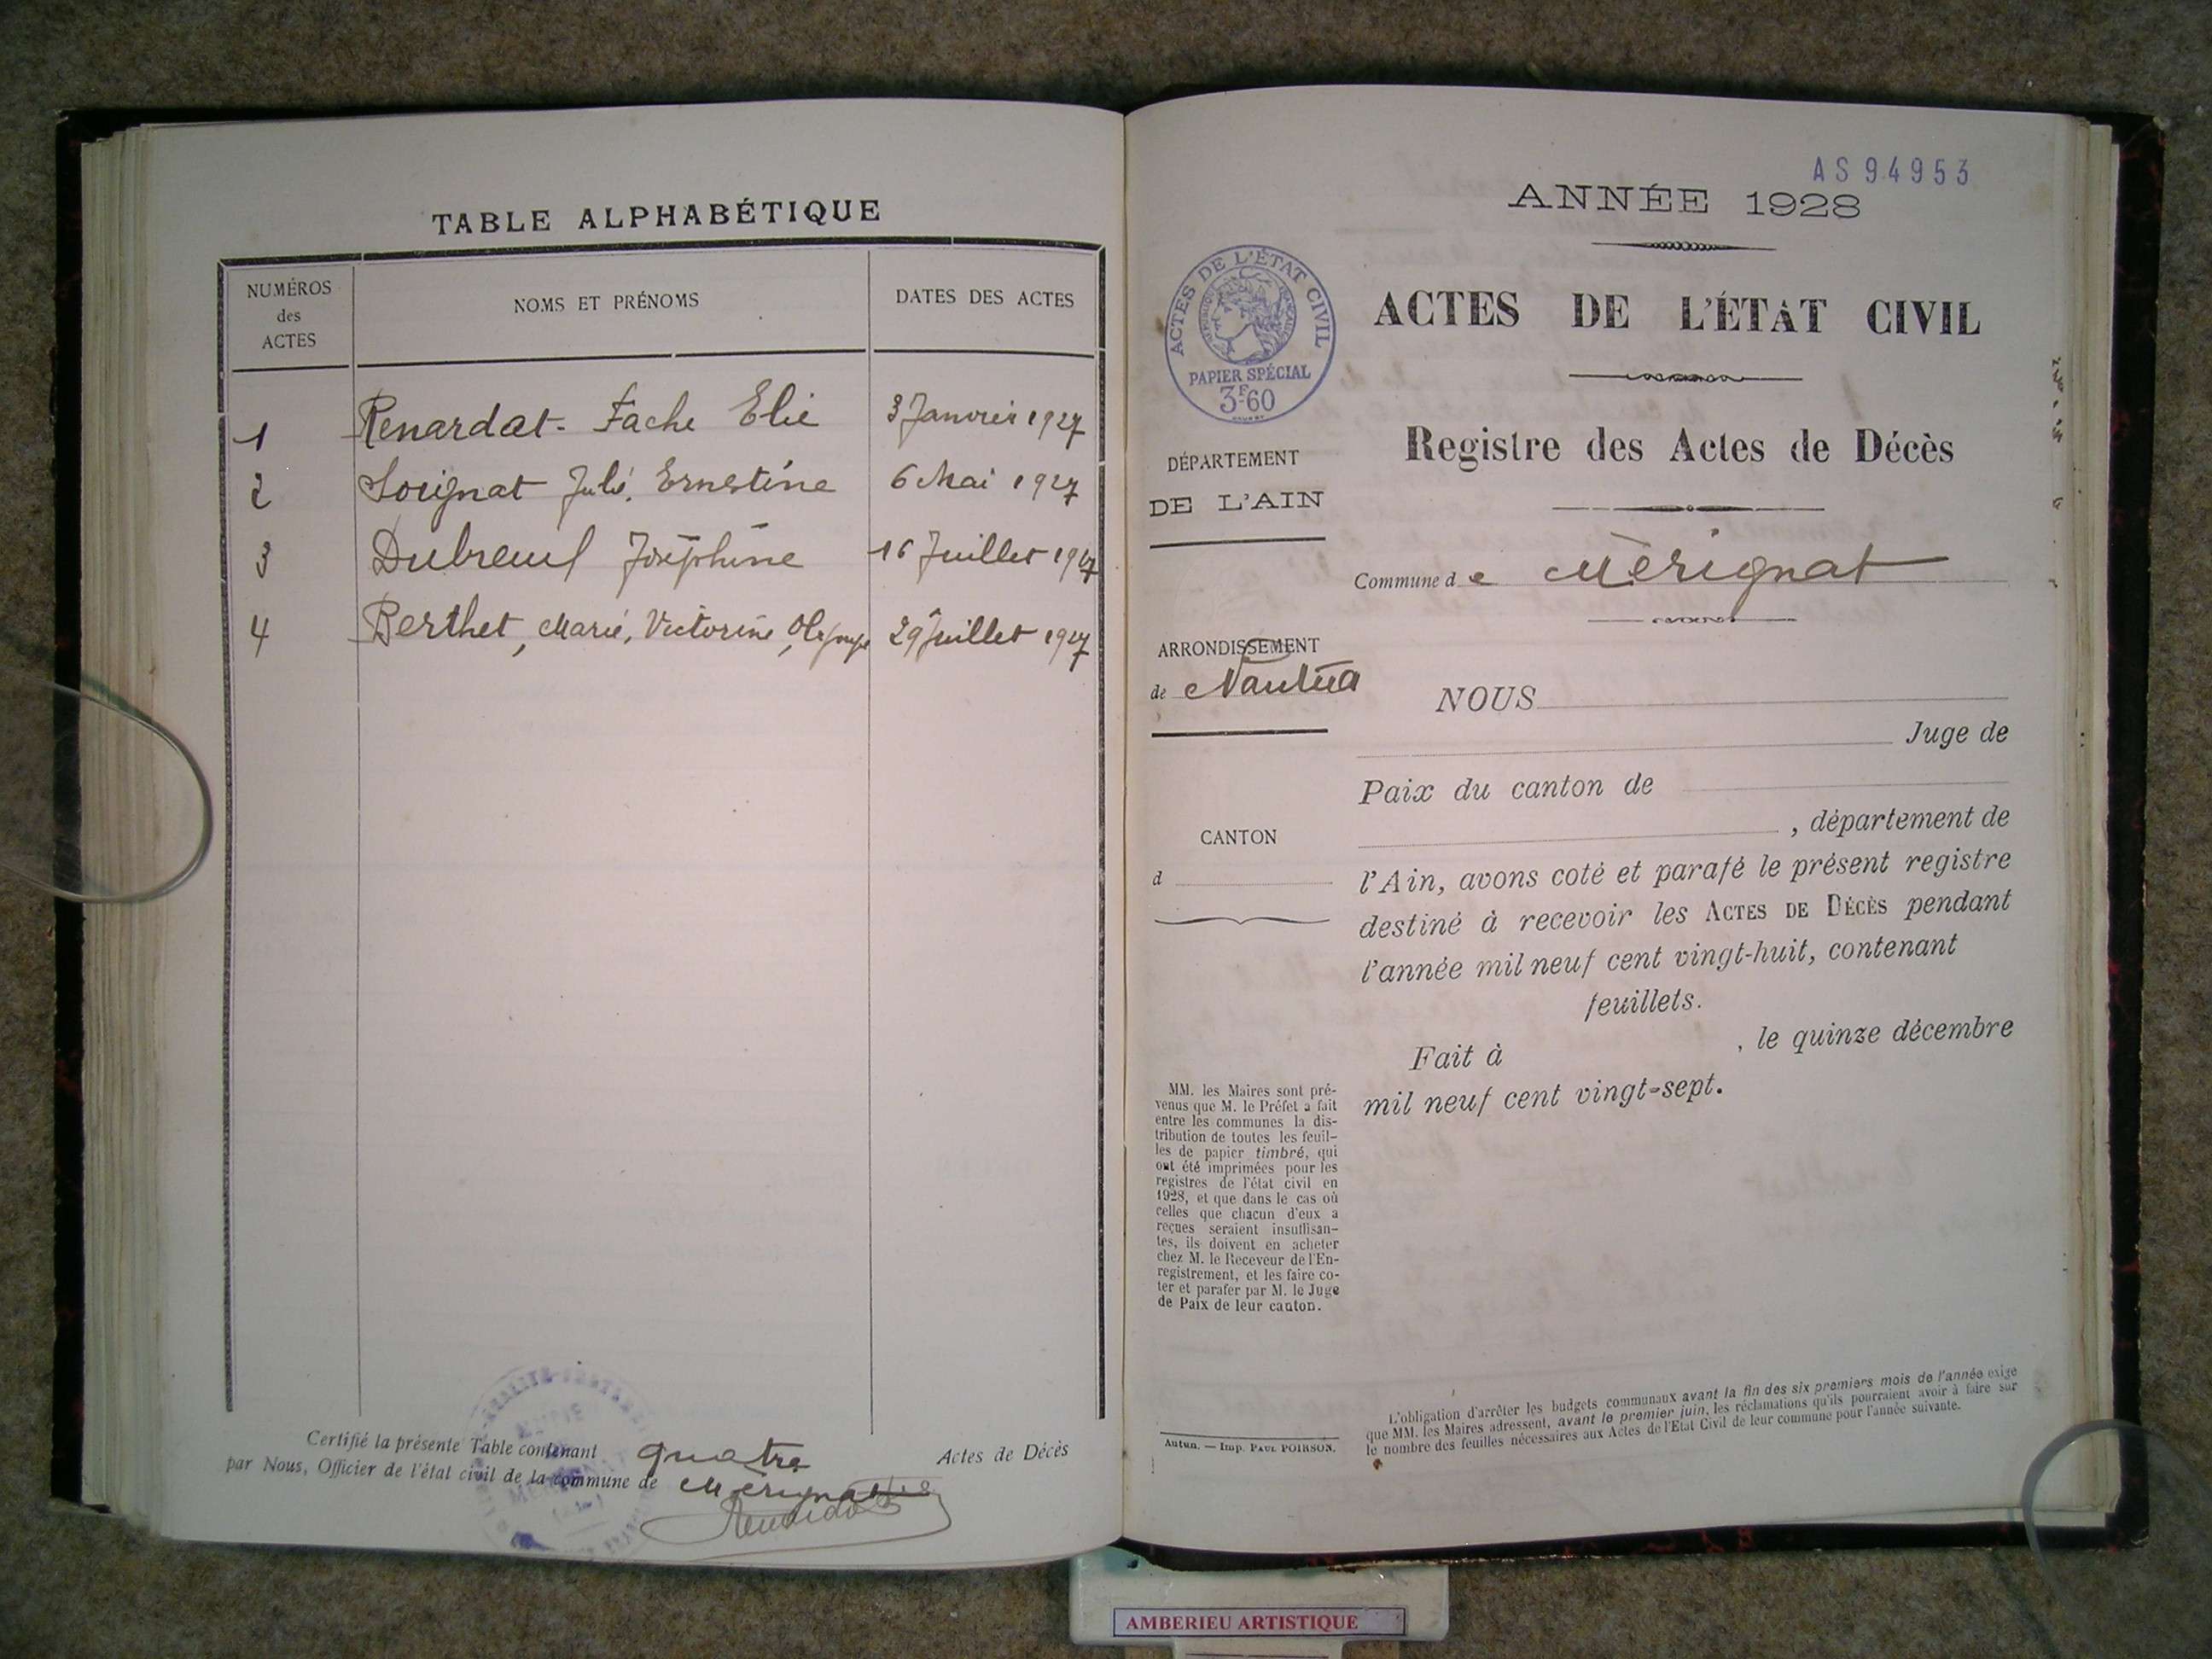 TABLE ALPHABÉTIQUE
NUMÉROS des ACTES
NOMS ET PRÉNOMS
DATES DES ACTES
1 Renardat-Fache Elie 3 Janvier 1927
2 Sorignat Julie, Ernestine 6 Mai 1927
3 Dubreuil Joséphine 16 Juillet 1927
4 Berthet, Marie, Victorine, Olympe 29 Juillet 1927
Certifié la présente Table contenant quatre Actes de Décès
par Nous, Officier de l'état civil de la commune de Mérignat
AS 94953
ANNÉE 1928
ACTES DE L'ÉTAT CIVIL
RÉPUBLIQUE FRANÇAISE
PAPIER SPÉCIAL
3F60
ACTES DE L'ÉTAT CIVIL
Registre des Actes de Décès
Commune de Mérignat
DÉPARTEMENT
DE L'AIN
ARRONDISSEMENT
de Nantua
CANTON
d
NOUS
Juge de
Paix du canton de
, département de
l'Ain, avons coté et parafé le présent registre
destiné à recevoir les ACTES DE DÉCÈS pendant
l'année mil neuf cent vingt-huit, contenant
feuillets.
Fait à , le quinze décembre
mil neuf cent vingt-sept.
MM. les Maires sont pré-
venus que M. le Préfet a fait
entre les communes la dis-
tribution de toutes les feuil-
les de papier timbré, qui
ont été imprimées pour les
registres de l'état civil en
1928, et que dans le cas où
celles que chacun d'eux a
reçues seraient insuffisan-
tes, ils doivent en acheter
chez M. le Receveur de l'En-
registrement, et les faire co-
ter et parafer par M. le Juge
de Paix de leur canton.
Autun. — Imp. PAUL POIRSON.
L'obligation d'arrêter les budgets communaux avant la fin des six premiers mois de l'année exige
que MM. les Maires adressent, avant le premier juin, les réclamations qu'ils pourraient avoir à faire sur
le nombre des feuilles nécessaires aux Actes de l'Etat Civil de leur commune pour l'année suivante.
AMBERIEU ARTISTIQUE